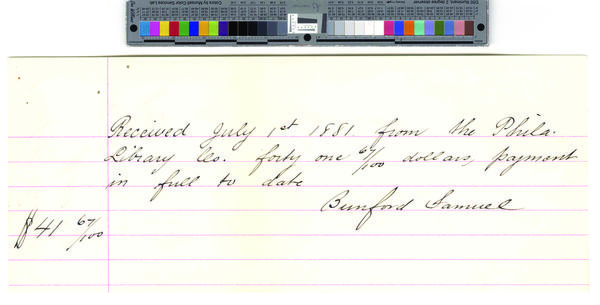 Received July 1st 1881. from the Phila.
Library Co. forty one 67/100 dollars, payment
in full to date
Bunford Samuel
$41 67/100